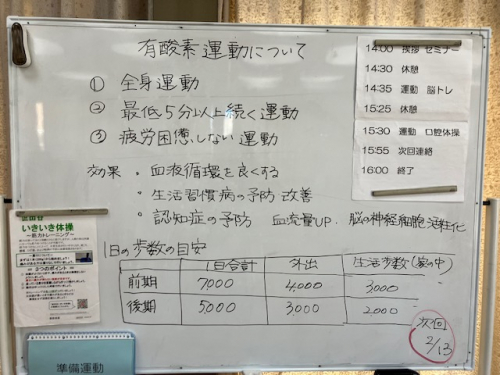 有酸素運動について
① 全身運動
② 最低5分以上続く運動
③ 疲労困憊しない運動
効果 ・血液循環を良くする
・生活習慣病の予防 改善
・認知症の予防 血流量UP. 脳の神経細胞活性化
1日の歩数の目安
1日合計 外出 生活歩数(家の中)
前期 7,000 4,000 3000
後期 5000 3000 2000
次回
2/13
14:00 挨拶 セミナー
14:30 休憩
14:35 運動 脳トレ
15:25 休憩
15:30 運動 口腔体操
15:55 次回連絡
16:00 終了
いきいき体操
~筋力トレーニング~
2つのポイント
準備運動